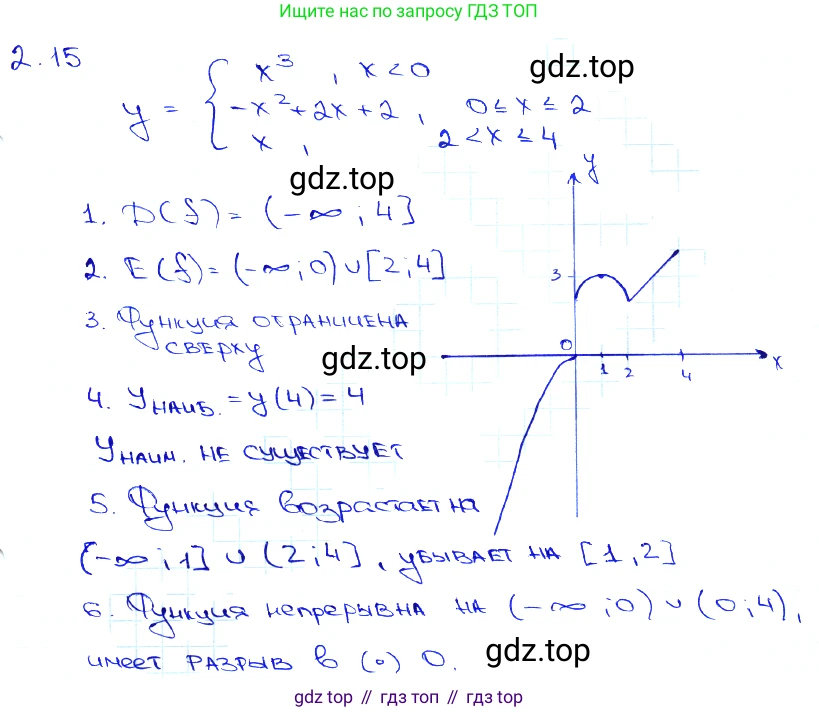 Ищите нас по запросу ГДЗ ТОП
2.15
gdz.top
y = { x³, x<0
-x²+2x+2, 0≤x≤2
x, 2<x≤4
gdz.top
y
1. D(f)=(-∞;4]
2. E(f)=(-∞;0)∪[2;4]
3
3. Функция ограничена
сверху
gdz.top
0
1 2 4 x
4. Унаиб. = y(4)=4
Унаим. не существует
5. Функция возрастает на
(-∞;1] ∪ (2;4], убывает на [1,2]
6. Функция непрерывна на (-∞;0)∪(0;4),
имеет разрыв в (•) 0.
gdz.top
gdz top // гдз топ // gdz top